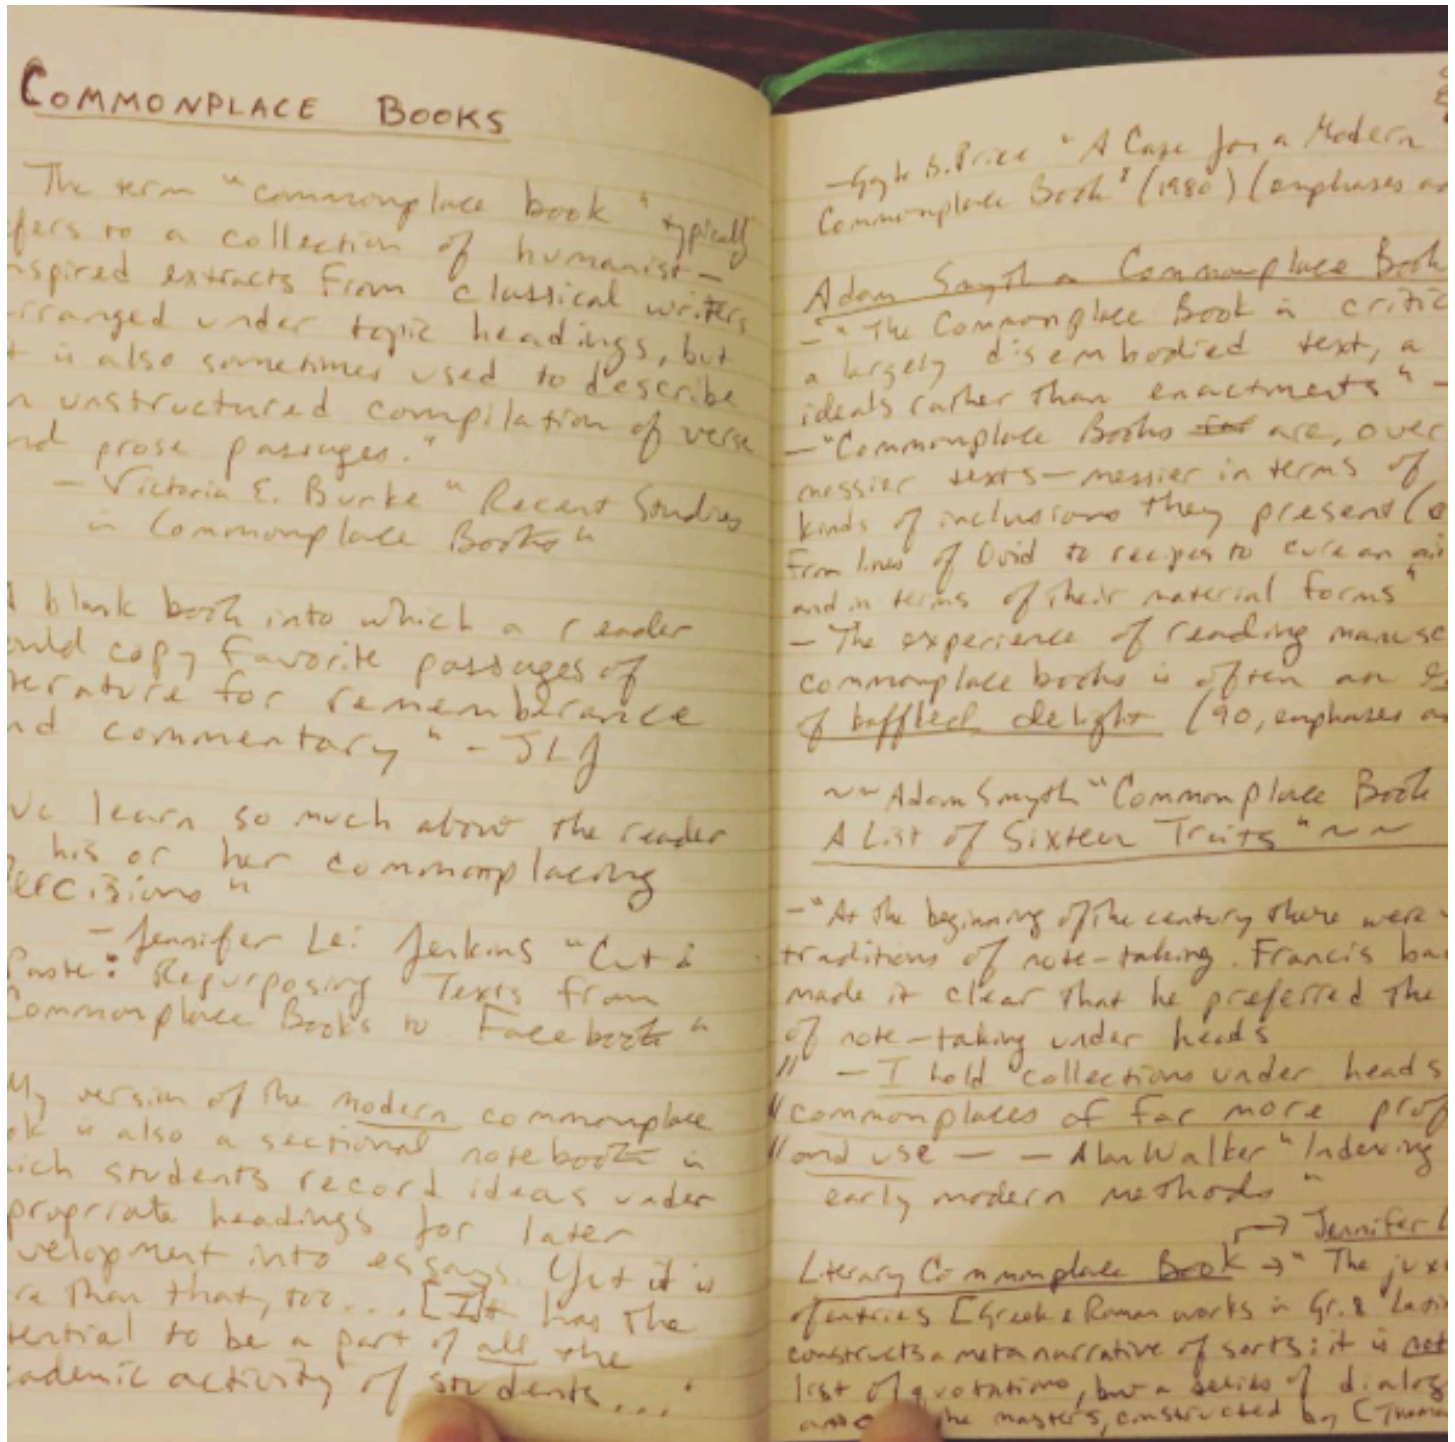 COMMONPLACE BOOKS
The term "commonplace book" typically
fers to a collection of humanist-
nspired extracts from classical writers
rranged under topic headings, but
t is also sometimes used to describe
n unstructured compilation of verse
nd prose passages."
- Victoria E. Burke "Recent Studies
in Commonplace Books"
blank book into which a reader
ould copy favorite passages of
terature for rememberance
nd commentary" - JLJ
We learn so much about the reader
his or her commonplacing
decisions"
- Jennifer Lei Jenkins "Cut &
Paste: Repurposing Texts from
Commonplace Books to Facebook"
My version of the modern commonplace
ok is also a sectional notebook in
hich students record ideas under
propriate headings for later
velopment into essays. Yet it is
re than that, too... [It has the
tential to be a part of all the
cademic activity of students...
- Gayle B. Price "A Case for a Modern
Commonplace Book" (1980) (emphases
Adam Smyth on Commonplace Book
- "The Commonplace Book is critic
a largely disembodied text, a
ideals rather than enactments" -
- "Commonplace Books are, over
messier texts - messier in terms of
kinds of inclusions they present (
from lines of Ovid to recipes to cure an
and in terms of their material forms"
- The experience of reading manusc
commonplace books is often an
of baffled delight (90, emphases
~~ Adam Smyth "Commonplace Book
A List of Sixteen Traits" ~~
- "At the beginning of the century there were
traditions of note-taking. Francis bac
made it clear that he preferred the
of note-taking under heads
" - I hold collections under heads
" commonplaces of far more prof
" and use - - Alan Walker "Indexing
early modern methods"
→ Jennifer L
Literary Commonplace Book → "The jux
of entries [Greek & Roman works in Gr. & Latin
constructs a metanarrative of sorts: it is not
list of quotations, but a series of dialog
the masters, constructed by [Thoma